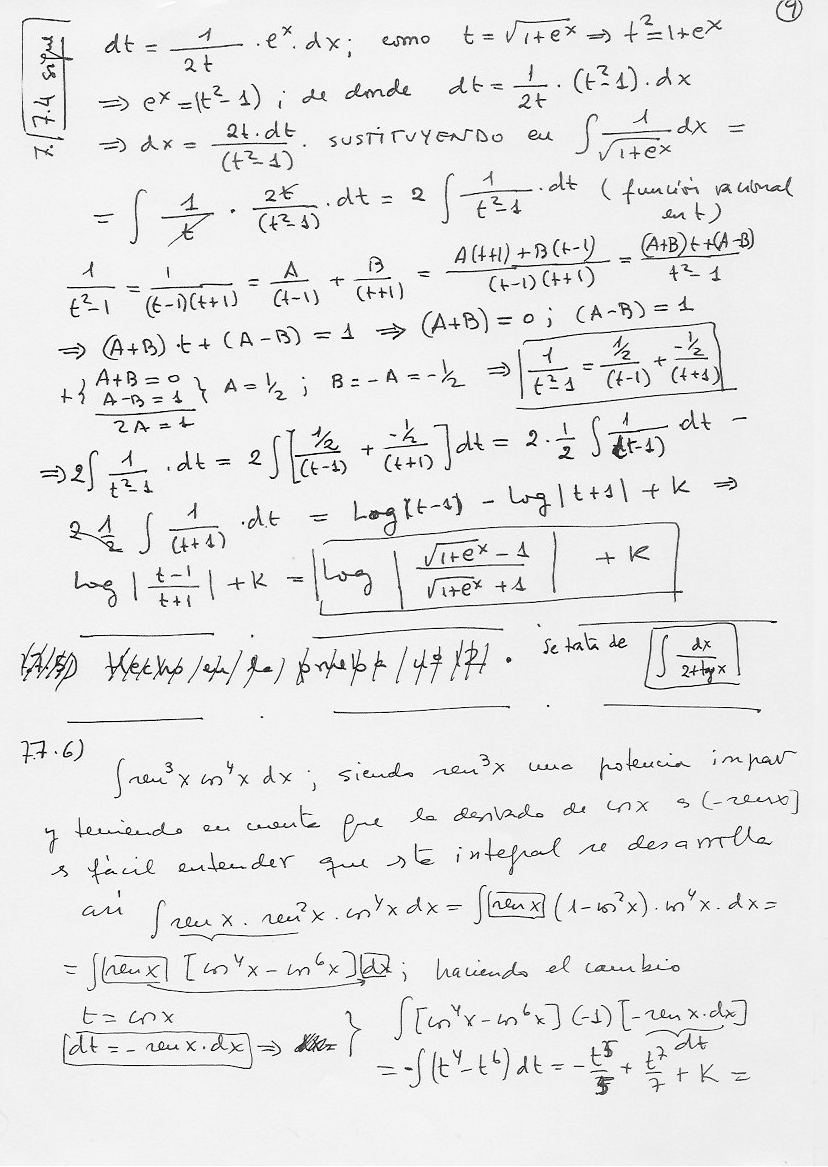 9
7./7.4 sigue
dt = 1/2t · eˣ · dx; como t = √(1+eˣ) ⇒ t² = 1+eˣ
⇒ eˣ = (t²-1) ; de donde dt = 1/2t · (t²-1) · dx
⇒ dx = 2t·dt/(t²-1) . SUSTITUYENDO en ∫ 1/√(1+eˣ) dx =
= ∫ 1/t · 2t/(t²-1) · dt = 2 ∫ 1/(t²-1) · dt (función racional
en t)
1/(t²-1) = 1/((t-1)(t+1)) = A/(t-1) + B/(t+1) = (A(t+1)+B(t-1))/((t-1)(t+1)) = ((A+B)t+(A-B))/(t²-1)
⇒ (A+B)·t + (A-B) = 1 ⇒ (A+B) = 0 ; (A-B) = 1
+{ A+B = 0
A-B = 1 } A = 1/2 ; B = -A = -1/2 ⇒ 1/(t²-1) = (1/2)/(t-1) + (-1/2)/(t+1)
2A = 1
⇒ 2∫ 1/(t²-1) · dt = 2∫[(1/2)/(t-1) + (-1/2)/(t+1)]dt = 2·1/2 ∫ 1/(t-1) dt -
2 1/2 ∫ 1/(t+1) · dt = Log|t-1| - Log|t+1| + K ⇒
Log |(t-1)/(t+1)| + K = Log |(√(1+eˣ) - 1)/(√(1+eˣ) + 1)| + K
Se trata de ∫ dx/(2+tg x)
7.7.6)
∫sen³x cos⁴x dx ; siendo sen³x una potencia impar
y teniendo en cuenta que la derivada de cos x es (-sen x)
es fácil entender que esta integral se desarrolla
así ∫ sen x · sen²x · cos⁴x dx = ∫ sen x (1-cos²x) · cos⁴x · dx =
= ∫ sen x [cos⁴x - cos⁶x] dx ; haciendo el cambio
t = cos x
dt = - sen x · dx ⇒ } ∫ [cos⁴x - cos⁶x] (-1) [- sen x·dx]
dt
= -∫(t⁴-t⁶) dt = -t⁵/5 + t⁷/7 + K =